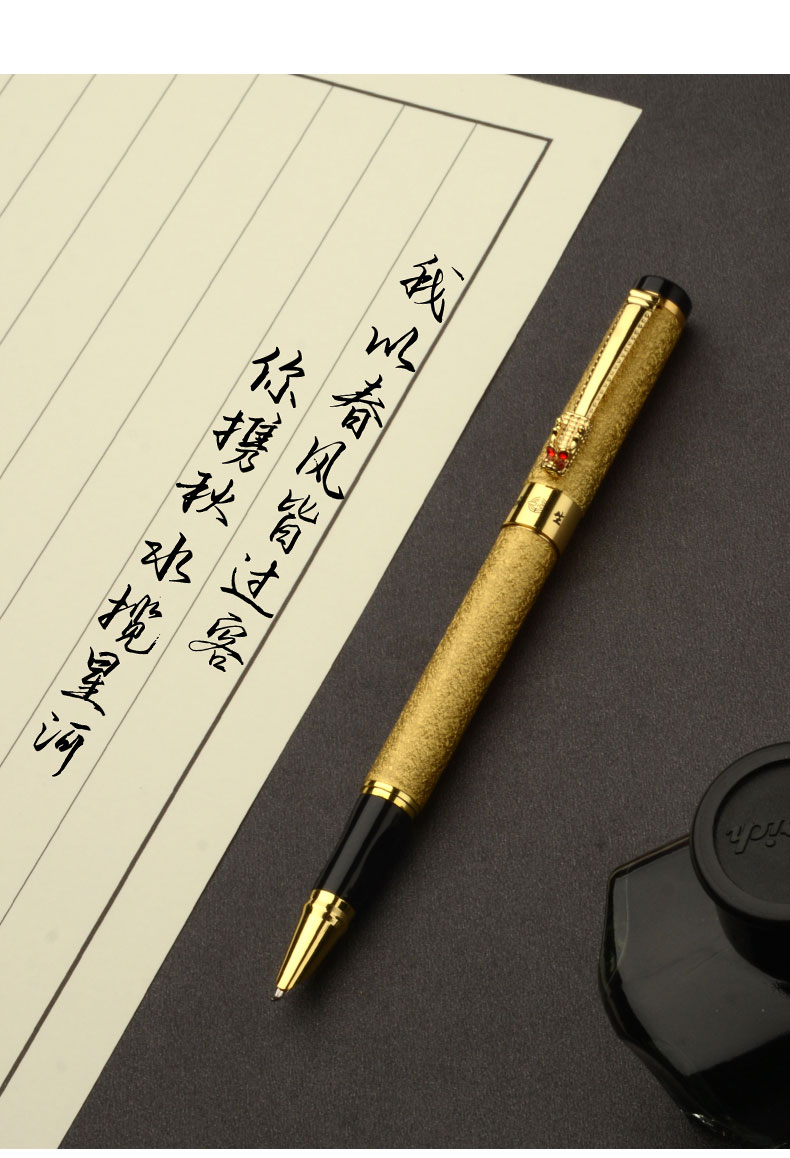 我以春风皆过客
你携秋水揽星河
生